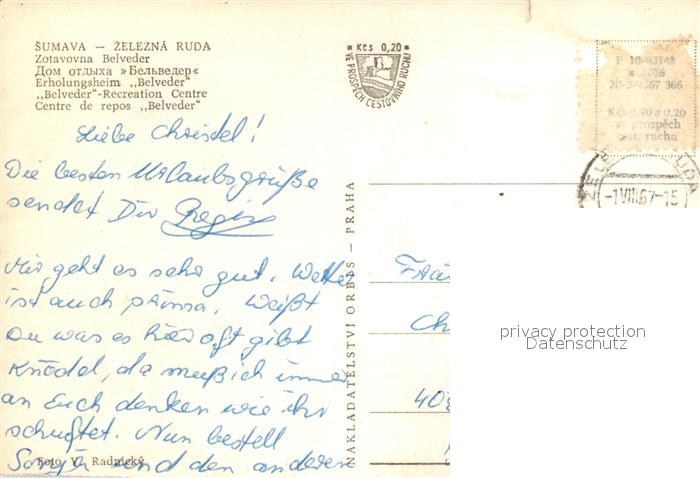 ŠUMAVA — ŽELEZNÁ RUDA
Zotavovna Belveder
Дом отдыха »Бельведер«
Erholungsheim ,,Belveder"
,,Belveder"-Recreation Centre
Centre de repos ,,Belveder"
Kčs 0,20
VE PROSPĚCH CESTOVNÍHO RUCHU
Kčs 0,70 a 0.20
ve prospěch
cest. ruchu
-1.VIII.67-15
Liebe Christel!
Die besten Urlaubsgrüße
sendet Dir Regin
Mir geht es sehr gut. Wetter
ist auch prima. Weißt
Du was es hier oft gibt
Knödel, da muß ich immer
an Euch denken wie ihr
schuftet. Nun bestell
und den anderen
Foto V. Radnický
NAKLADATELSTVÍ ORBIS — PRAHA
Frä
Ch
privacy protection
Datenschutz